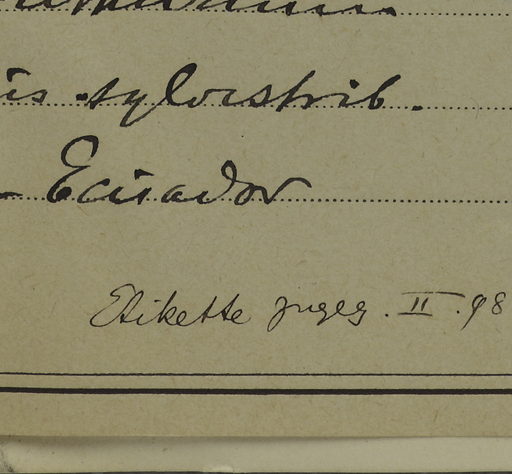 is sylvestrib.
Ecuador
Etikette zugeg. II. 98